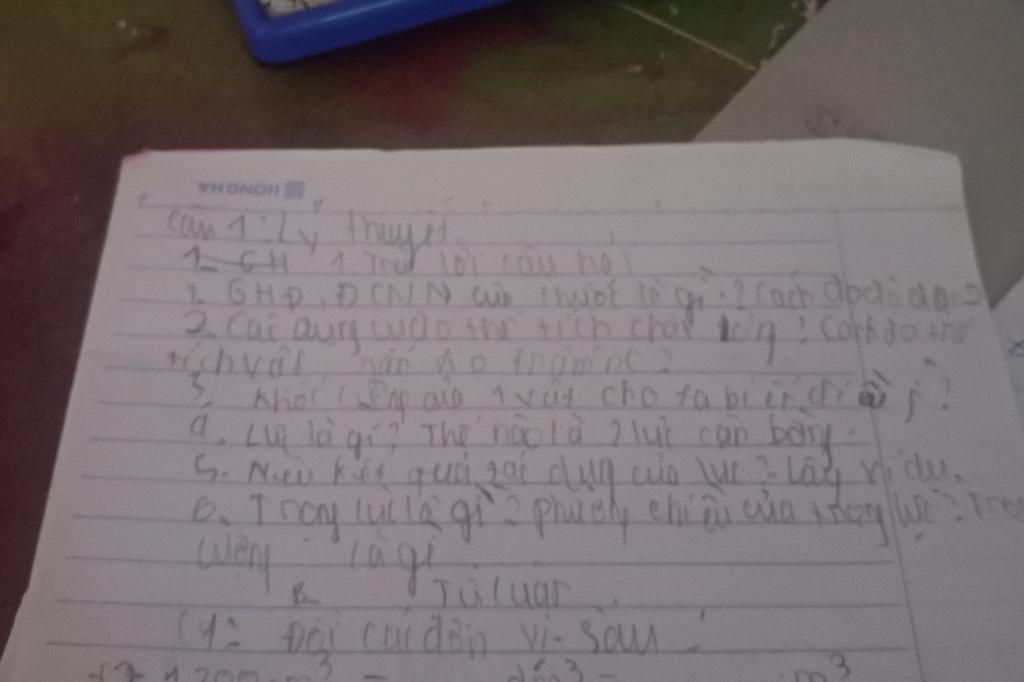 HONG HA
Câu 1: Lý thuyết
1. GH 1 Trả lời câu hỏi
1. GHĐ, ĐCNN của thước là gì? Cách đo độ dài?
2. Các dụng cụ đo thể tích chất lỏng? Cách đo thể
tích vật rắn ko thấm nc?
3. Khối lượng của 1 vật cho ta biết điều j?
4. Lực là gì? Thế nào là 2 lực cân bằng.
5. Nêu kết quả tác dụng của lực? lấy ví dụ.
6. Trọng lực là gì? phương chiều của trọng lực? Trọng
lượng là gì
B Tự luận
C1: Đổi các đơn vị sau:
dm³ = m³